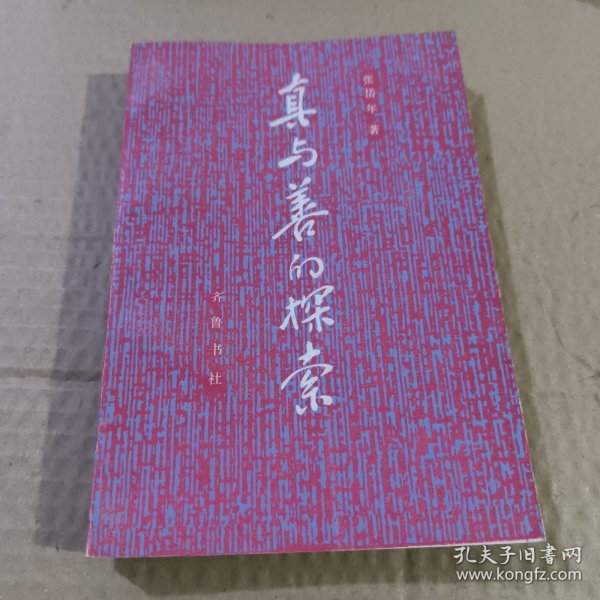 张岱年 著
真与善的探索
齐鲁书社
孔夫子旧书网
www.kongfz.com